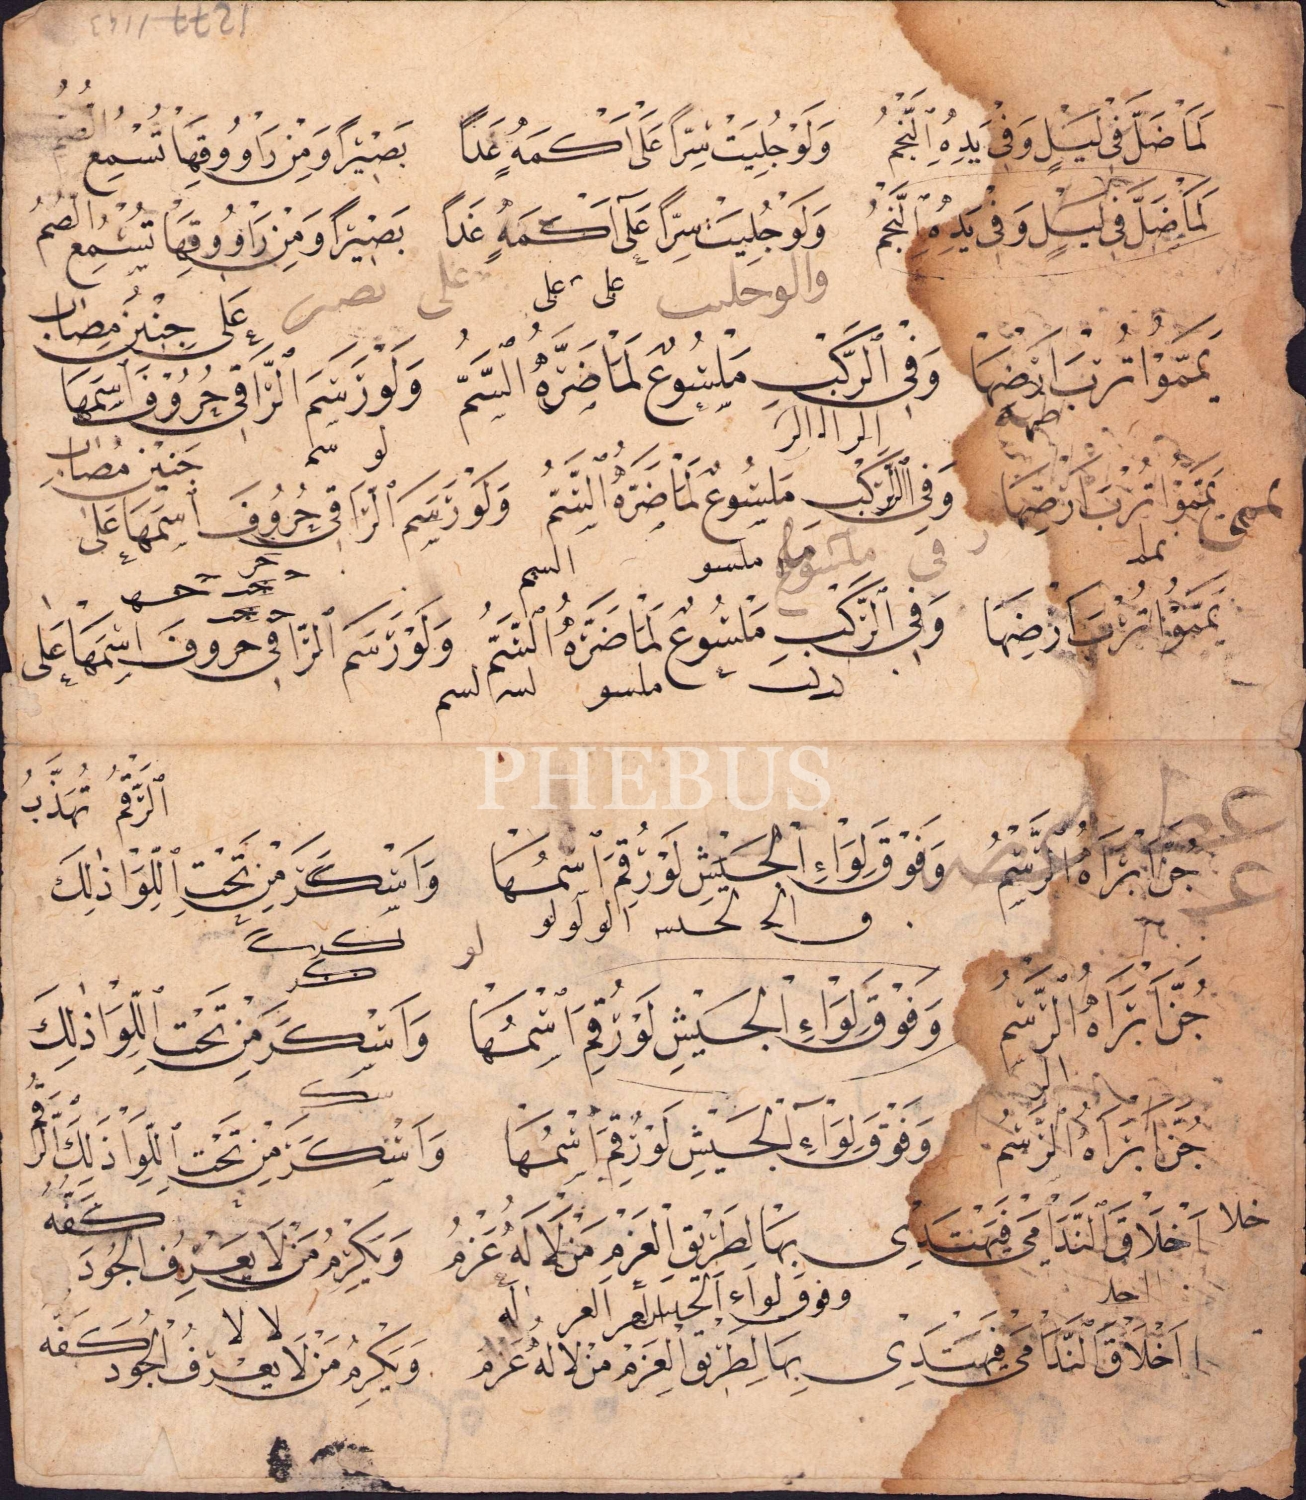 لَمَا ضَلَّ فِي لَيْلٍ وَفِي يَدِهِ النَّجْمُ وَلَوْ جُلِيَتْ سِرًّا عَلَى أَكْمَهٍ غَدَا بَصِيْرًا وَمِنْ رَاوُوقِهَا تُسْمِعُ الصُّمُّ
لَمَا ضَلَّ فِي لَيْلٍ وَفِي يَدِهِ النَّجْمُ وَلَوْ جُلِيَتْ سِرًّا عَلَى أَكْمَهٍ غَدَا بَصِيْرًا وَمِنْ رَاوُوقِهَا تُسْمِعُ الصُّمُ
على على
عَلَى جَبِيْنِ مُصَابٍ
يَمَّمُوْا تُرْبَ اَرْضِهَا وَفِي الرَّكْبِ مَلْسُوعٌ لَمَا ضَرَّهُ السَّمُّ وَلَوْ رَسَمَ الرَّاقِي حُرُوْفَ اسْمِهَا
لو سم
جَبِيْنِ مُصَابٍ
يَمَّمُوْا تُرْبَ اَرْضِهَا وَفِي الرَّكْبِ مَلْسُوعٌ لَمَا ضَرَّهُ السَّمُّ وَلَوْ رَسَمَ الرَّاقِي حُرُوْفَ اسْمِهَا عَلَى
في ملسوع ملسو السم
يَمَّمُوْا تُرْبَ اَرْضِهَا وَفِي الرَّكْبِ مَلْسُوعٌ لَمَا ضَرَّهُ السَّمُّ وَلَوْ رَسَمَ الرَّاقِي حروفَ اسْمِهَا عَلَى
ملسو لسم
PHEBUS
الرَّقْمُ تُهَذِّبُ
جُنَّ أَبْرَاهُ الرَّسْمُ وَفَوْقَ لِوَاءِ الْجَيْشِ لَوْ رُقِمَ اسْمُهَا وَاَسْكَرَ مَنْ تَحْتَ اللِّوَا ذٰلِكَ
الو لو لو
لو
جُنَّ أَبْرَاهُ الرَّسْمُ وَفَوْقَ لِوَاءِ الْجَيْشِ لَوْ رُقِمَ اسْمُهَا وَاَسْكَرَ مَنْ تَحْتَ اللِّوَا ذٰلِكَ
جُنَّ أَبْرَاهُ الرَّسْمُ وَفَوْقَ لِوَآءِ الْجَيْشِ لَوْ رُقِمَ اسْمُهَا وَاَسْكَرَ مَنْ تَحْتَ اللِّوَا ذَلِكَ الرَّقْمُ
خلا اَخْلَاقَ النَّدَامَى فَيَهْتَدِى بِهَا لِطَرِيْقِ الْعَزْمِ مَنْ لَا لَهُ عَزْمُ وَيَكْرُمُ مَنْ لَا يَعْرِفُ الْجُودَ كَفُّهُ
وفوق لواء
لا لا
اَخْلَاقَ النَّدَامَى فَيَهْتَدِى بِهَا لِطَرِيْقِ الْعَزْمِ مَنْ لَا لَهُ عَزْمُ وَيَكْرُمُ مَنْ لَا يَعْرِفُ الْجُودَ كَفُّهُ